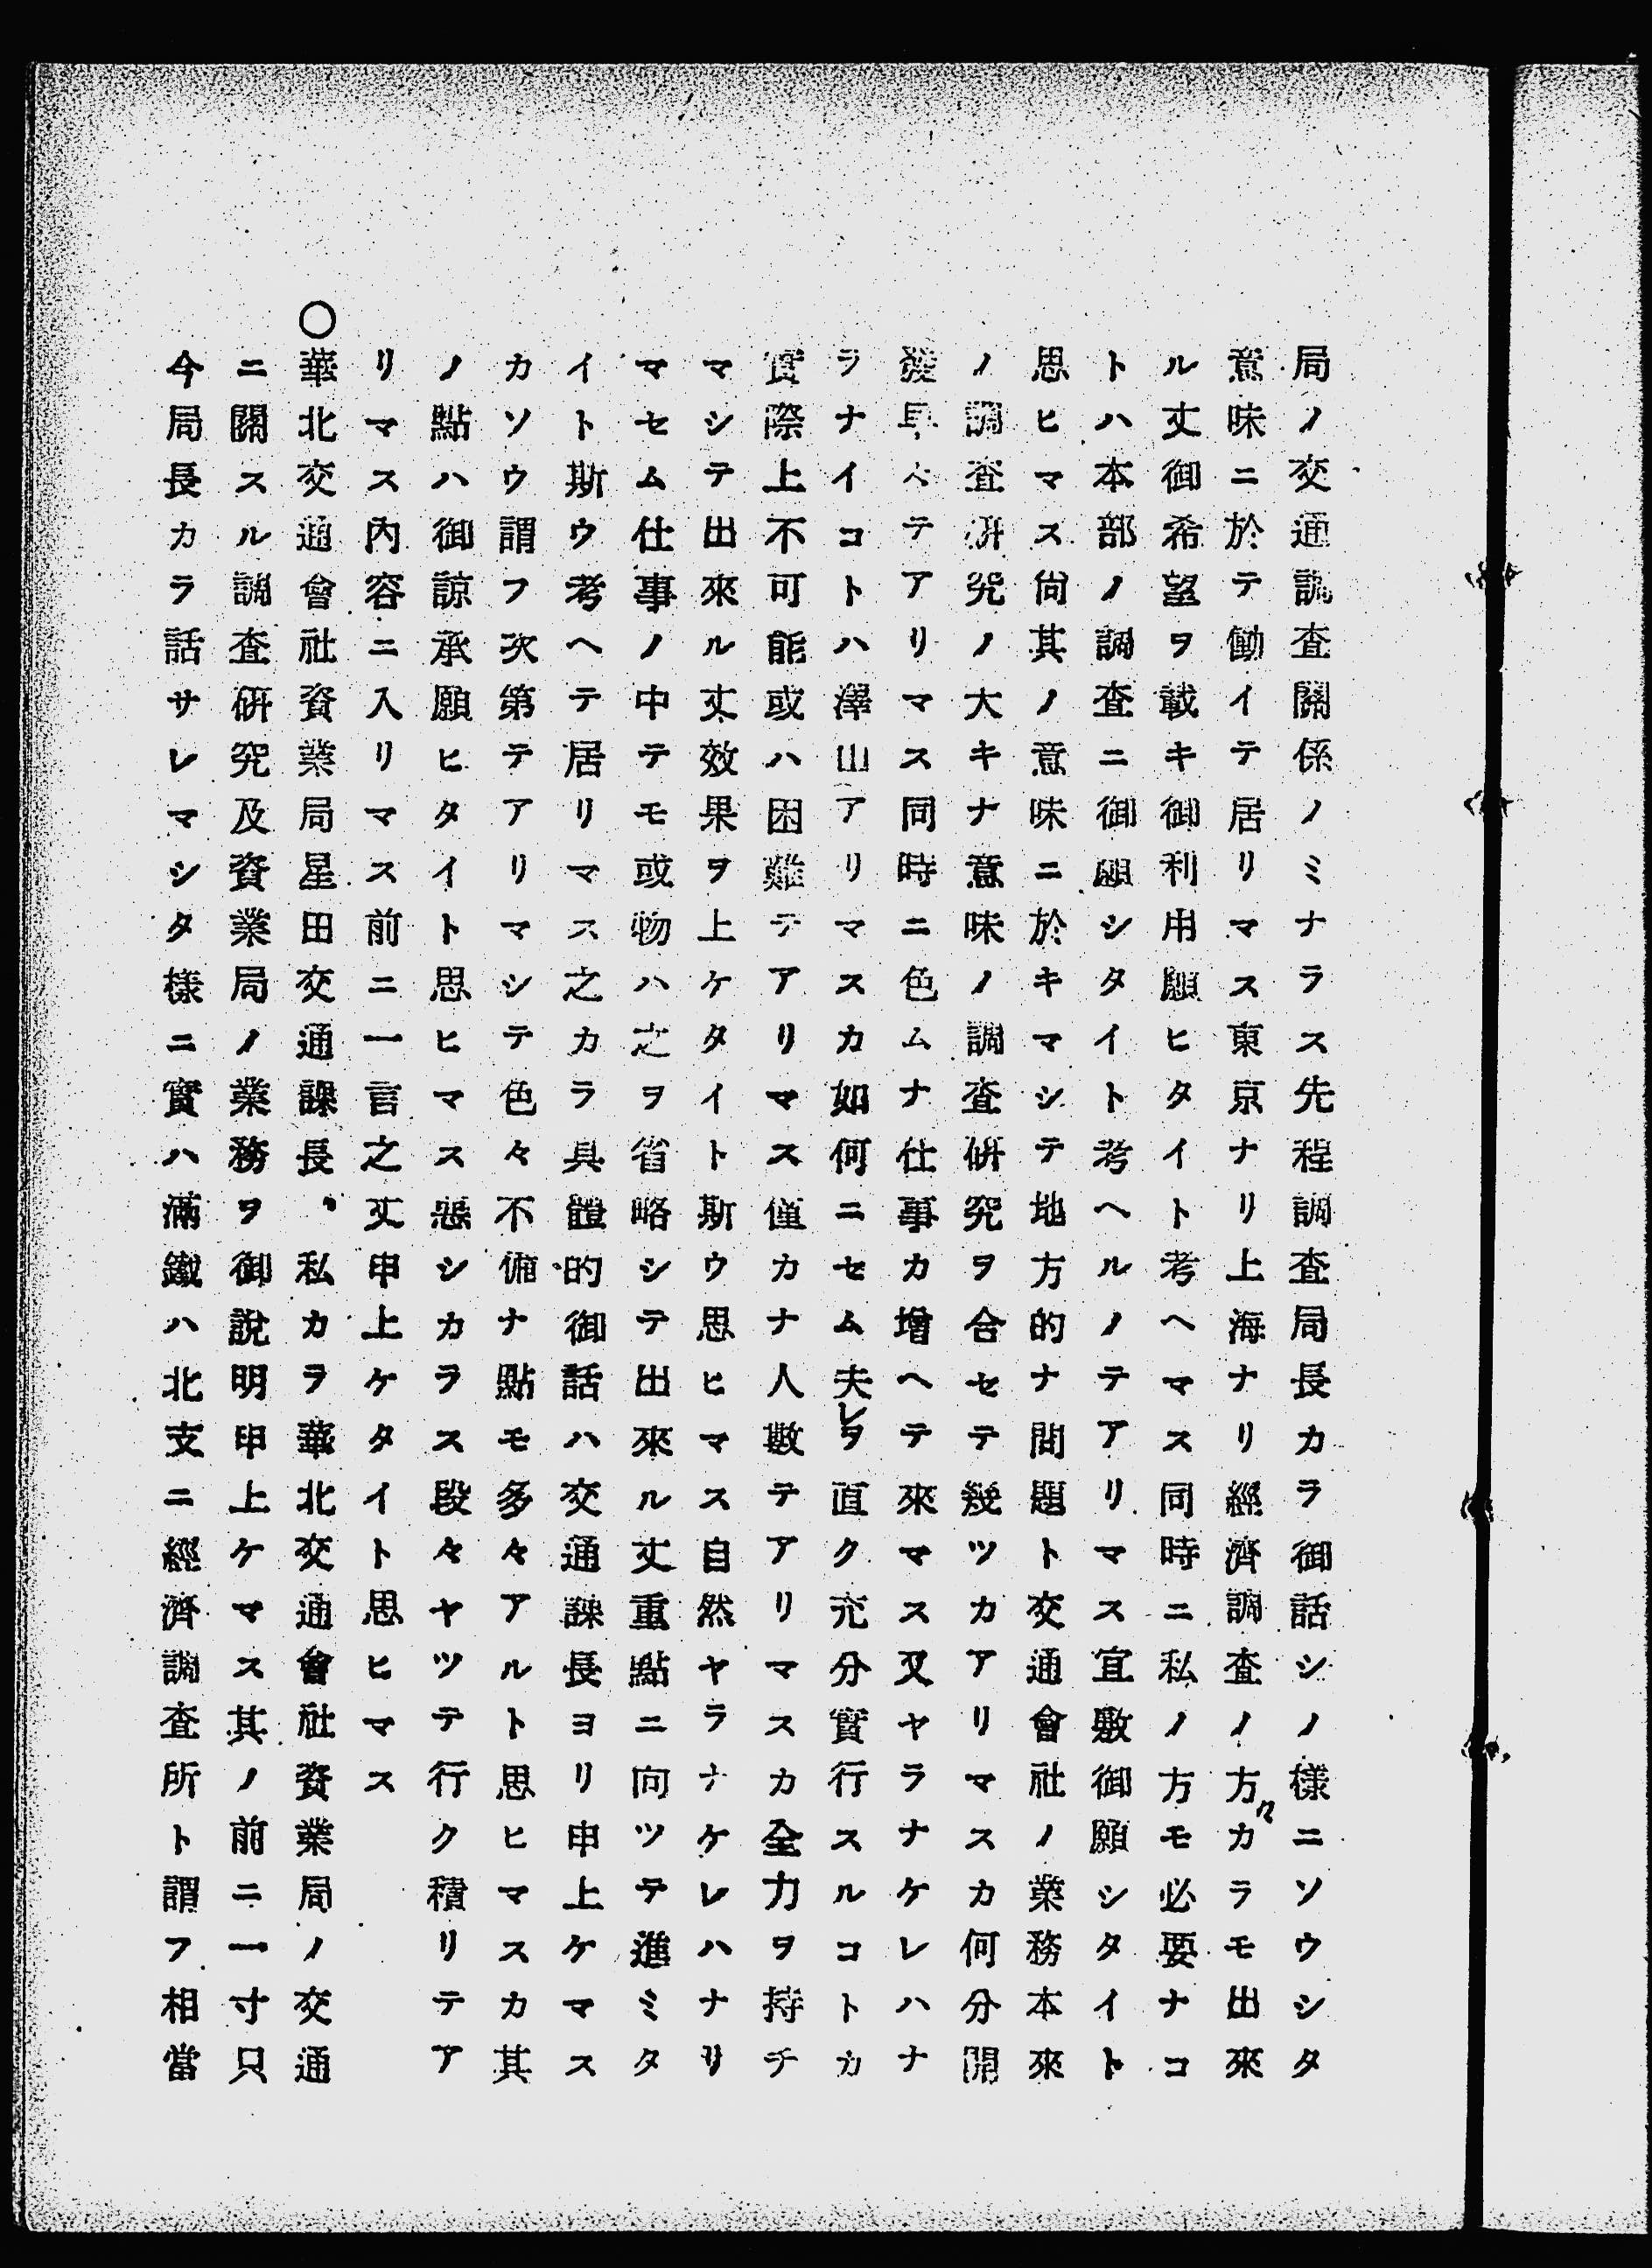 局ノ交通調査關係ノミナラス先程調査局長カラ御話シノ樣ニソウシタ
意味ニ於テ働イテ居リマス東京ナリ上海ナリ經濟調査ノ方カラモ出來
ル丈御希望ヲ載キ御利用願ヒタイト考ヘマス同時ニ私ノ方モ必要ナコ
トハ本部ノ調査ニ御願シタイト考ヘルノテアリマス宜敷御願シタイト
思ヒマス尙其ノ意味ニ於キマシテ地方的ナ問題ト交通會社ノ業務本來
ノ調査硏究ノ大キナ意味ノ調査硏究ヲ合セテ幾ツカアリマスカ何分開
發早々テアリマス同時ニ色ムナ仕事カ增ヘテ來マス又ヤラナケレハナ
ラナイコトハ澤山アリマスカ如何ニセム夫レヲ直ク充分實行スルコトカ
實際上不可能或ハ困難テアリマス僅カナ人數テアリマスカ全力ヲ持チ
マシテ出來ル丈效果ヲ上ケタイト斯ウ思ヒマス自然ヤラナケレハナリ
マセム仕事ノ中テモ或物ハ之ヲ省略シテ出來ル丈重點ニ向ツテ進ミタ
イト斯ウ考ヘテ居リマス之カラ具體的御話ハ交通課長ヨリ申上ケマス
カソウ謂フ次第テアリマシテ色々不備ナ點モ多々アルト思ヒマスカ其
ノ點ハ御諒承願ヒタイト思ヒマス惡シカラス段々ヤツテ行ク積リテア
リマス內容ニ入リマス前ニ一言之丈申上ケタイト思ヒマス
○華北交通會社資業局星田交通課長、私カヲ華北交通會社資業局ノ交通
ニ關スル調査硏究及資業局ノ業務ヲ御說明申上ケマス其ノ前ニ一寸只
今局長カラ話サレマシタ樣ニ實ハ滿鐵ハ北支ニ經濟調査所ト謂フ相當